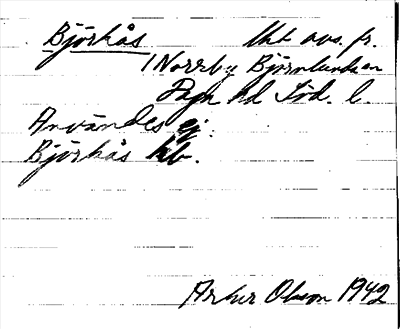 Björkås lht avs. fr.
1 Norrby Björnlundasn
Daga hd Söd. l.
Användes ej.
Björkås hb.
Arthur Olsson 1942